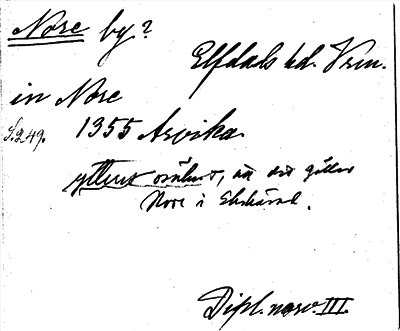 Nore by?
Elfdals hd. Vrm.
in Nore
S. 249. 1355 Arvika
ytterst osäkert, att det gäller
Nore i Ekshärad.
Dipl. norv. III.